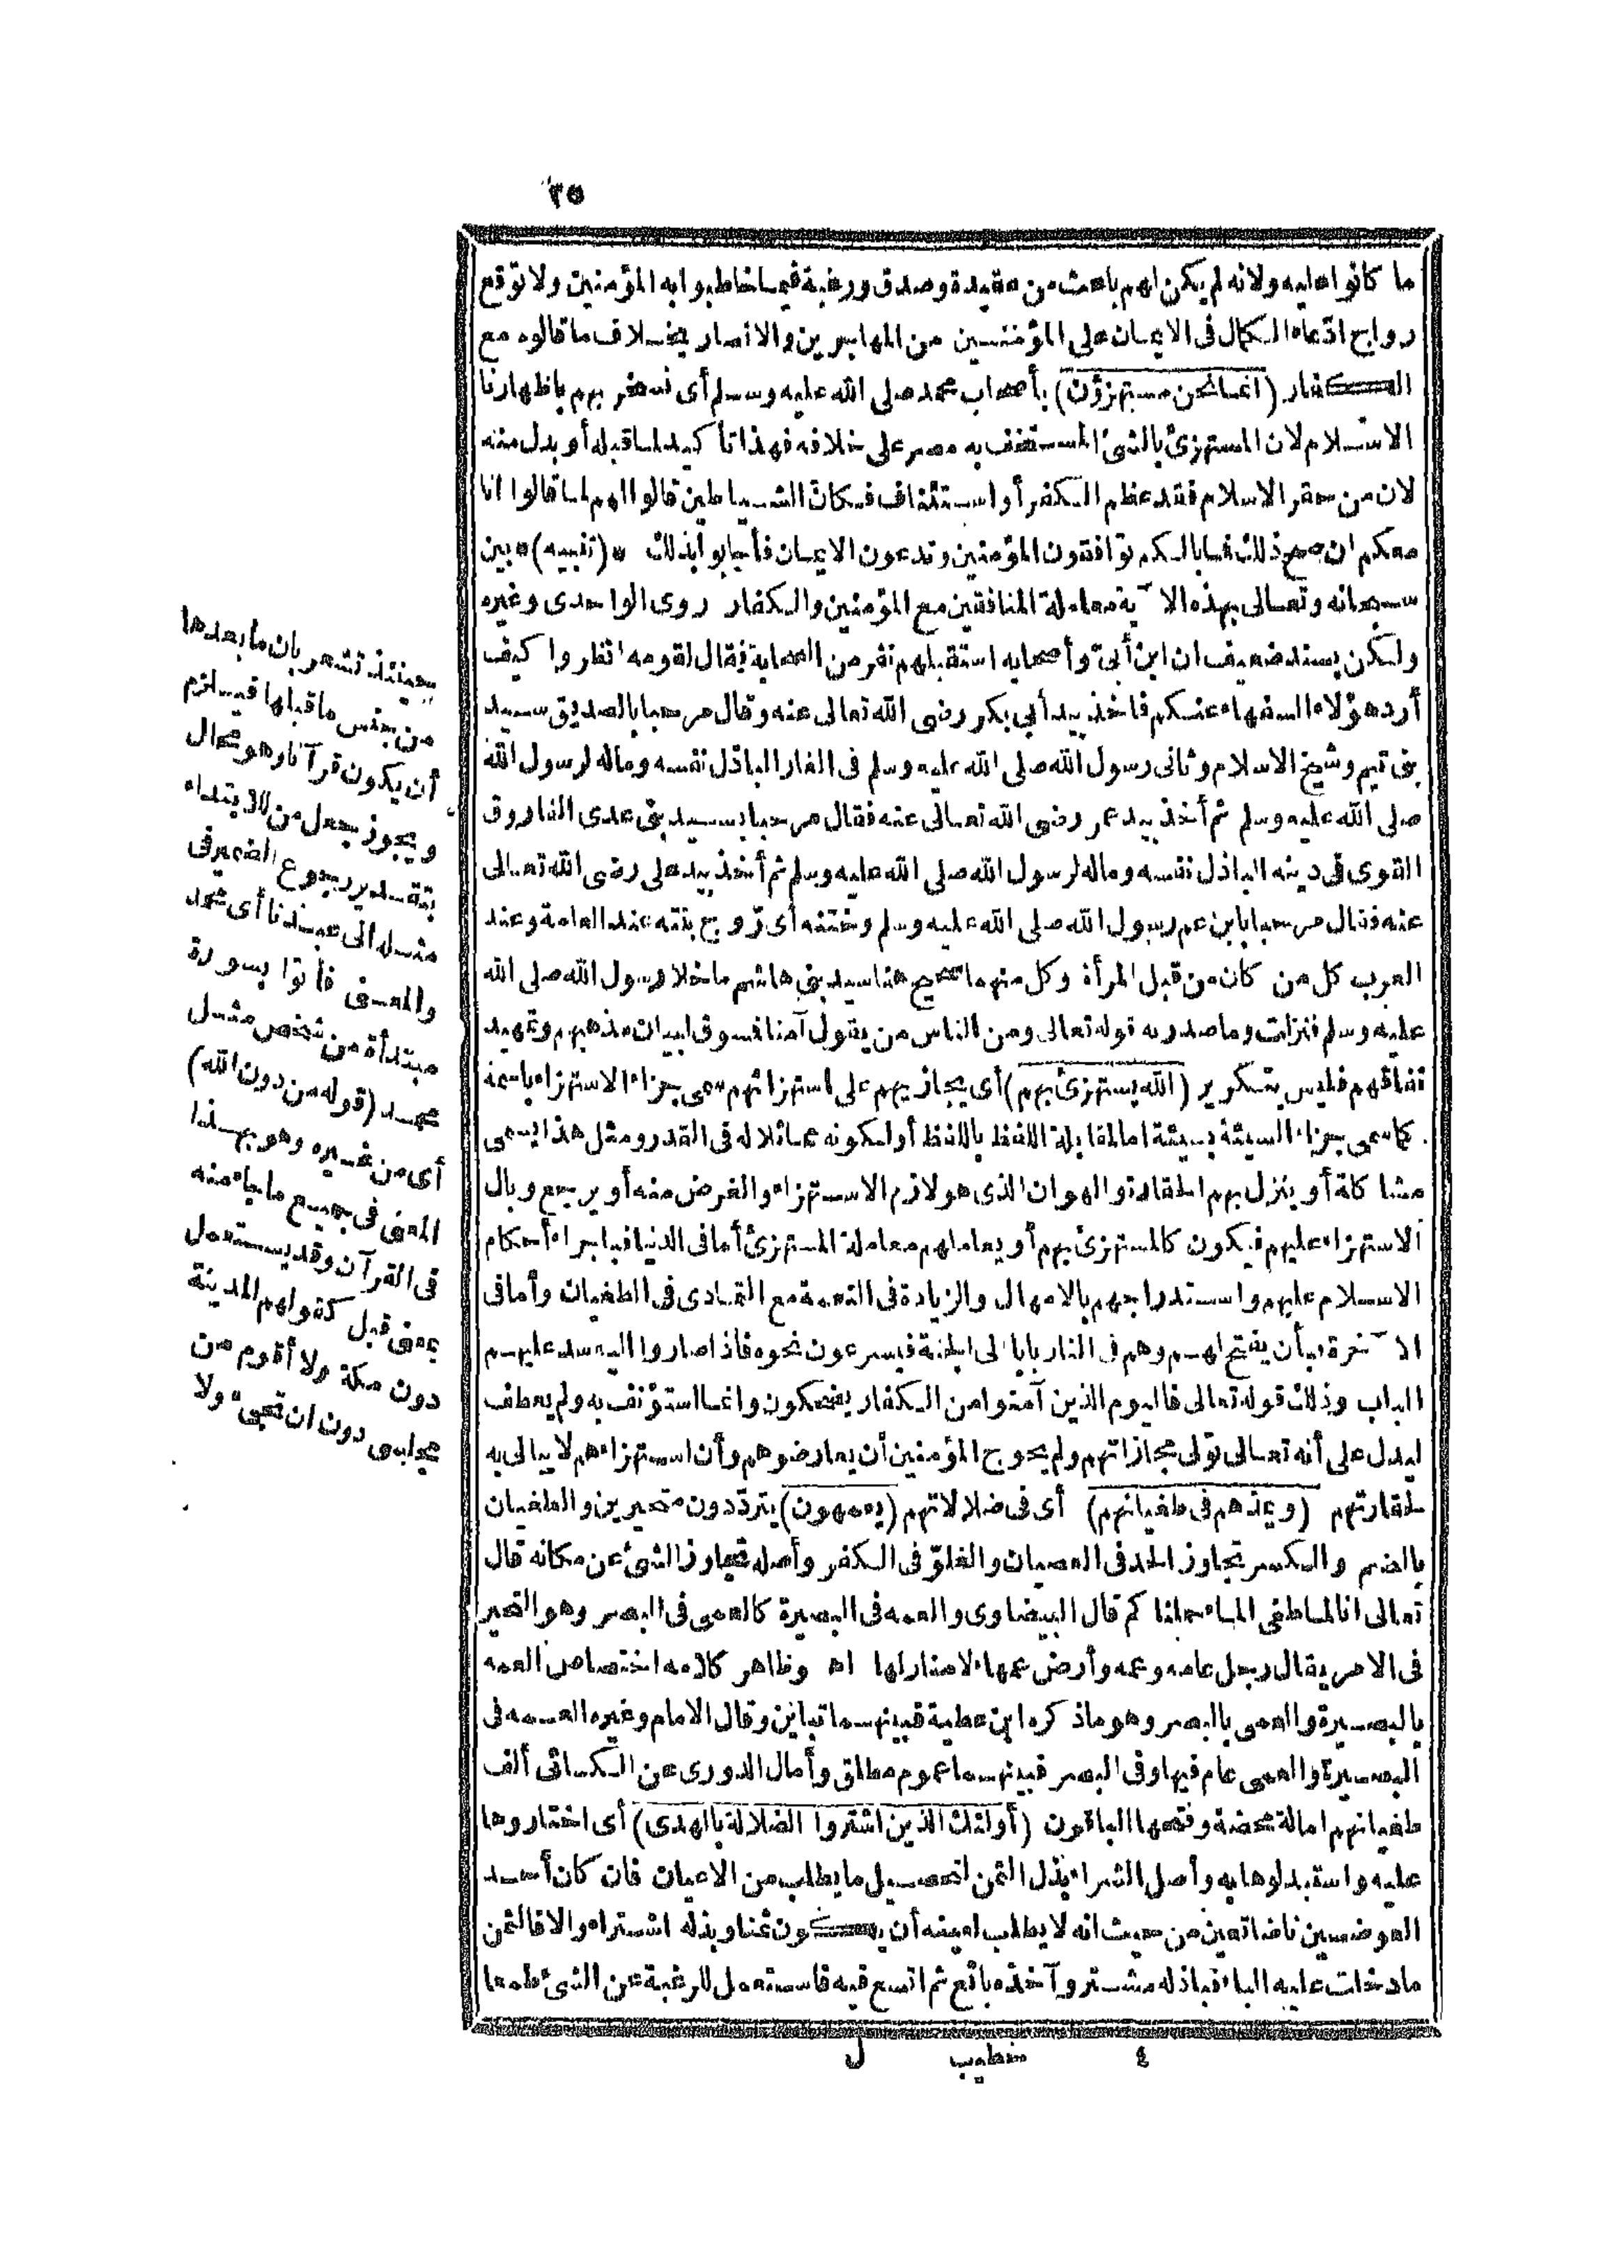 ٢٥
ما كانوا عليه ولانه لم يكن لهم باعث من عقيدة وصدق ورغبة فيما خاطبوا به المؤمنين ولا توقع
رواج ادّعاء الكمال فى الايمان على المؤمنين من المهاجرين والانصار بخلاف ما قالوه مع
الكفار (انما نحن مستهزؤن) بأصحاب محمد صلى الله عليه وسلم أى نسخر بهم باظهارنا
الاسلام لان المستهزئ بالشئ المستخف به مصر على خلافه فهذا تأكيد لما قبله أو بدل منه
لان من حقر الاسلام فقد عظم الكفر أو استئناف فكان الشياطين قالوا لهم لما قالوا انا
معكم ان صح ذلك فما بالكم توافقون المؤمنين وتدعون الايمان فأجابوا بذلك * (تنبيه) * بين
سبحانه وتعالى بهذه الآية معاملة المنافقين مع المؤمنين والكفار روى الواحدى وغيره
ولكن بسند ضعيف ان ابن أبىّ وأصحابه استقبلهم نفر من الصحابة فقال لقومه انظروا كيف
أرد هؤلاء السفهاء عنكم فاخذ بيد أبى بكر رضى الله تعالى عنه وقال مرحبا بالصديق سيد
بنى تيم وشيخ الاسلام وثانى رسول الله صلى الله عليه وسلم فى الغار الباذل نفسه وماله لرسول الله
صلى الله عليه وسلم ثم أخذ بيد عمر رضى الله تعالى عنه فقال مرحبا بسيد بنى عدى الفاروق
القوى فى دينه الباذل نفسه وماله لرسول الله صلى الله عليه وسلم ثم أخذ بيد على رضى الله تعالى
عنه فقال مرحبا بابن عم رسول الله صلى الله عليه وسلم وختنه أى زوج بنته عند العامة وعند
العرب كل من كان من قبل المرأة وكل منهما صحيح هنا سيد بنى هاشم ما خلا رسول الله صلى الله
عليه وسلم فنزلت وما صدر به قوله تعالى ومن الناس من يقول آمنا فسوق لبيان مذهبهم وتمهيد
نفاقهم فليس بتكرير (الله يستهزئ بهم) أى يجازيهم على استهزائهم سمى جزاء الاستهزاء باسمه
كما سمى جزاء السيئة بسيئة اما لمقابلة اللفظ باللفظ أو لكونه مماثلا له فى القدر ومثل هذا يسمى
مشاكلة أو ينزل بهم الحقارة والهوان الذى هو لازم الاستهزاء والغرض منه أو يرجع وبال
الاستهزاء عليهم فيكون كالمستهزئ بهم أو يعاملهم معاملة المستهزئ أما فى الدنيا فباجراء أحكام
الاسلام عليهم واستدراجهم بالامهال والزيادة فى النعمة مع التمادى فى الطغيان وأما فى
الآخرة فبأن يفتح لهم وهم فى النار بابا الى الجنة فيسرعون نحوه فاذا صاروا اليه سد عليهم
الباب وذلك قوله تعالى فاليوم الذين آمنوا من الكفار يضحكون وانما استؤنف به ولم يعطف
ليدل على أنه تعالى تولى مجازاتهم ولم يحوج المؤمنين أن يعارضوهم وأن استهزاءهم لا يبالى به
لحقارتهم (ويمدّهم فى طغيانهم) أى فى ضلالاتهم (يعمهون) يتردّدون متحيرين والطغيان
بالضم والكسر تجاوز الحد فى العصيان والغلوّ فى الكفر وأصله تجاوز الشئ عن مكانه قال
تعالى انا لما طغى الماء حملناكم قال البيضاوى والعمه فى البصيرة كالعمى فى البصر وهو التحير
فى الامر يقال رجل عامه وعمه وأرض عمهاء لا منار لها اه وظاهر كلامه اختصاص العمه
بالبصيرة والعمى بالبصر وهو ما ذكره ابن عطية فبينهما تباين وقال الامام وغيره العمه فى
البصيرة والعمى عام فيها وفى البصر فبينهما عموم مطلق وأمال الدورى عن الكسائى ألف
طغيانهم امالة محضة وفتحها الباقون (أولئك الذين اشتروا الضلالة بالهدى) أى اختاروها
عليه واستبدلوها به وأصل الشراء بذل الثمن لتحصيل ما يطلب من الاعيان فان كان أحد
العوضين ناضا تعين من حيث انه لا يطلب لعينه أن يكون ثمنا وبذله اشتراء والا فالثمن
ما دخلت عليه الباء فباذله مشتر وآخذه بائع ثم اتسع فيه فاستعمل للرغبة عن الشئ طمعا
٤ خطيب ل
حينئذ تشعر بان ما بعدها
من جنس ما قبلها فيلزم
أن يكون قرآنا وهو محال
ويجوز جعل من للابتداء
بتقدير رجوع الضمير فى
مثله الى عبدنا أى محمد
والمعنى فأتوا بسورة
مبتدأة من شخص مثل
محمد (قوله من دون الله)
أى من غيره وهو بهذا
المعنى فى جميع ما جاء منه
فى القرآن وقد يستعمل
بمعنى قبل كقولهم المدينة
دون مكة ولا أقوم من
مجلسى دون ان تجىء ولا